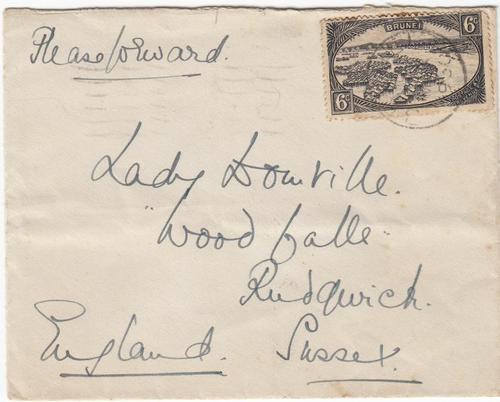 Please forward.
BRUNEI
6c
6c
Lady Domville.
"Wood falls"
Rudgwick.
England. Sussex.